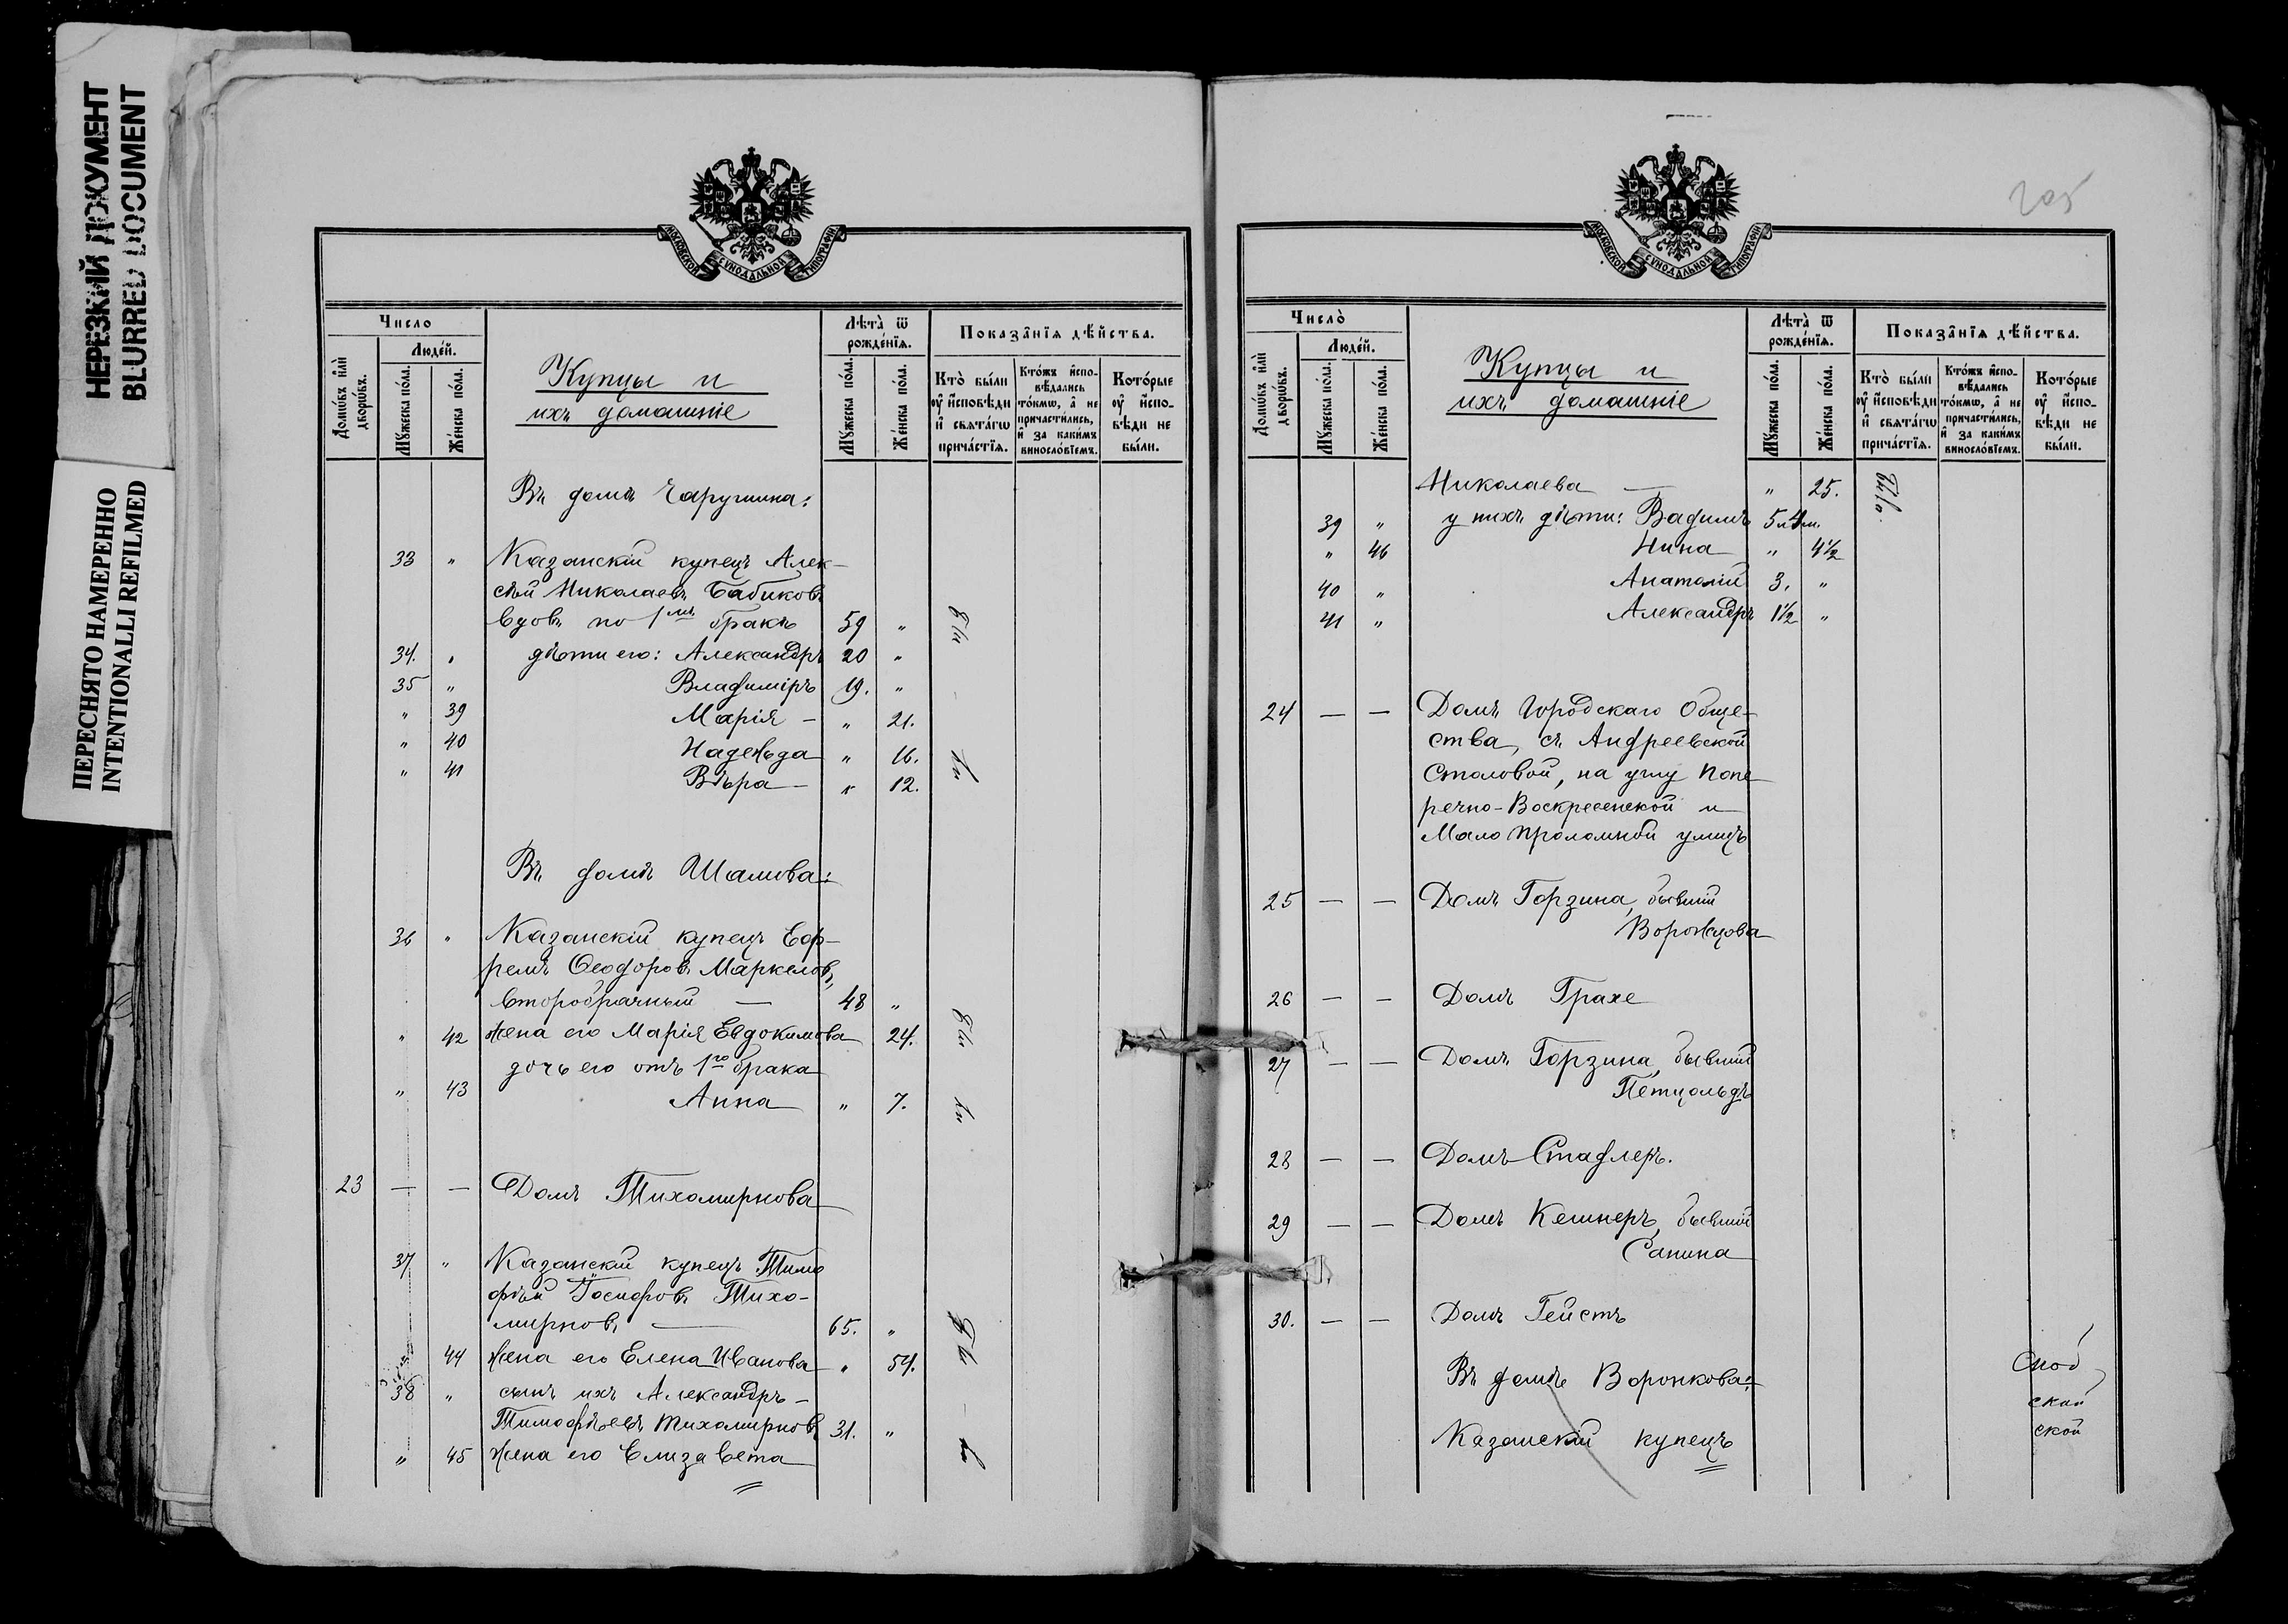 НЕРЕЗКИЙ ДОКУМЕНТ
BLURRED DOCUMENT
ПЕРЕСНЯТО НАМЕРЕННО
INTENTIONALLI REFILMED
МОСКОВСКОЙ СѴНОДАЛЬНОЙ ТИПОГРАФІИ
Число
Людей.
Домѡвъ или дворѡвъ.
Мужеска пола.
Женска пола.
Купцы и
ихъ домашніе
Лѣта ѿ рожденія.
Мужеска пола.
Женска пола.
Показанія дѣйства.
Кто были у исповѣди и святагѡ причастія.
Ктожъ исповѣдались токмѡ, а не причастились, и за какимъ винословіемъ.
Которые у исповѣди не были.
Въ домѣ Чарушина:
33 " Казанскій купецъ Алек-
сѣй Николаевъ Бабиковъ
вдовъ по 1мъ бракѣ 59 "
34. " дѣти его: Александръ 20 "
35 " Владиміръ 19. "
" 39 Марія - " 21.
" 40 Надежда " 16.
" 41 Вѣра - " 12.
Въ домѣ Шамова:
36 " Казанскій купецъ Еф-
ремъ Ѳеодоровъ Маркеловъ,
второбрачный — 48 "
" 42 жена его Марія Евдокимова 24.
дочь его отъ 1го брака
" 43 Анна " 7.
23 — — Домъ Тихомирнова
37 " Казанскій купецъ Тимо
фѣй Іосифовъ Тихо-
мирновъ — 65. "
44 жена его Елена Иванова " 54.
38 " сынъ ихъ Александръ -
Тимофѣевъ Тихомирновъ 31. "
" 45 жена его Елизавета
205
МОСКОВСКОЙ СѴНОДАЛЬНОЙ ТИПОГРАФІИ
Число
Людей.
Домѡвъ или дворѡвъ.
Мужеска пола.
Женска пола.
Купцы и
ихъ домашніе
Лѣта ѿ рожденія.
Мужеска пола.
Женска пола.
Показанія дѣйства.
Кто были у исповѣди и святагѡ причастія.
Ктожъ исповѣдались токмѡ, а не причастились, и за какимъ винословіемъ.
Которые у исповѣди не были.
Николаева — " 25.
39 " у нихъ дѣти: Вадимъ 5л 4м.
" 46 Нина " 4½
40 " Анатолій 3. "
41 " Александръ 1½ "
24 — — Домъ Городскаго Обще-
ства, съ Андреевской
Столовой, на углу Попе
речно-Воскресенской и
Мало Проломной улицъ
25 — — Домъ Горзина, бывшій
Воронцова
26 — — Домъ Грахе
27 — — Домъ Горзина, бывшій
Петцольдъ
28 — — Домъ Стафлеръ.
29 — — Домъ Кешнеръ, бывшій
Санина
30. — — Домъ Гейстъ
Въ домѣ Воронкова:
Казанскій купецъ
ской
ской